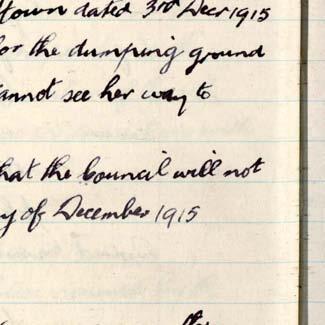 town dated 3rd Decr 1915
for the dumping ground
cannot see her way to
that the Council will not
y of December 1915